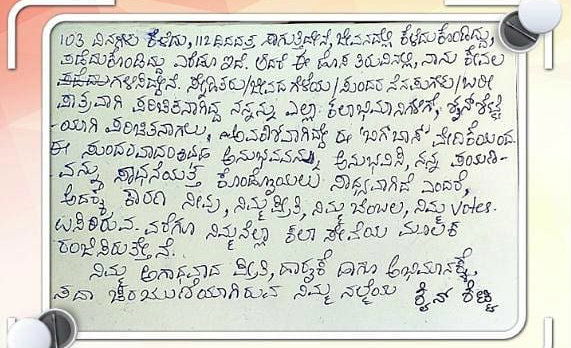 103 ದಿನಗಳು ಕಳೆದು, 112 ದಿನದತ್ತ ಸಾಗುತ್ತಿದ್ದೇನೆ, ಜೀವನದಲ್ಲಿ ಕಳೆದುಕೊಂಡಿದ್ದು,
ಪಡೆದುಕೊಂಡಿದ್ದು ಎರಡೂ ಇದೆ. ಆದರೆ ಈ ಬಿಗ್ ತಿರುವಿನಲ್ಲಿ, ನಾನು ಕೇವಲ
ಪಡೆದು ಗಳಿಸಿದ್ದೇನೆ. ಸ್ನೇಹಿತರು/ಜೀವದ ಗೆಳೆಯ/ಸುಂದರ ನೆನಪುಗಳು/ಬರೀ
ಪಾತ್ರವಾಗಿ ಪರಿಚಿತನಾಗಿದ್ದ ನನ್ನನ್ನು ಎಲ್ಲಾ ಕಲಾಭಿಮಾನಿಗಳಿಗೆ, ಶೈನ್ ಶೆಟ್ಟಿ
-ಯಾಗಿ ಪರಿಚಿತನಾಗಲು, ಈ 'ಬಿಗ್ ಬಾಸ್' ವೇದಿಕೆಯಿಂದ.
ಈ ಸುಂದರವಾದಂತಹ ಅನುಭವವನ್ನು, ಅನುಭವಿಸಿ, ನನ್ನ ಪಯಣ-
-ವನ್ನು ಸಾಧನೆಯತ್ತ ಕೊಂಡೊಯ್ಯಲು ಸಾಧ್ಯವಾಗಿದೆ ಎಂದರೆ,
ಅದಕ್ಕೆ ಕಾರಣ ನೀವು, ನಿಮ್ಮ ಪ್ರೀತಿ, ನಿಮ್ಮ ಬೆಂಬಲ, ನಿಮ್ಮ Votes.
ಉಸಿರಿರುವ ವರೆಗೂ ನಿಮ್ಮನ್ನೆಲ್ಲಾ ಕಲಾ ಸೇವೆಯ ಮೂಲಕ
ರಂಜಿಸಿರುತ್ತೇನೆ.
ನಿಮ್ಮ ಅಗಾಧವಾದ ಪ್ರೀತಿ, ಹಾರೈಕೆ ಹಾಗೂ ಅಭಿಮಾನಕ್ಕೆ,
ಸದಾ ಚಿರಋಣಿಯಾಗಿರುವ ನಿಮ್ಮ ನಲ್ಮೆಯ ಶೈನ್ ಶೆಟ್ಟಿ